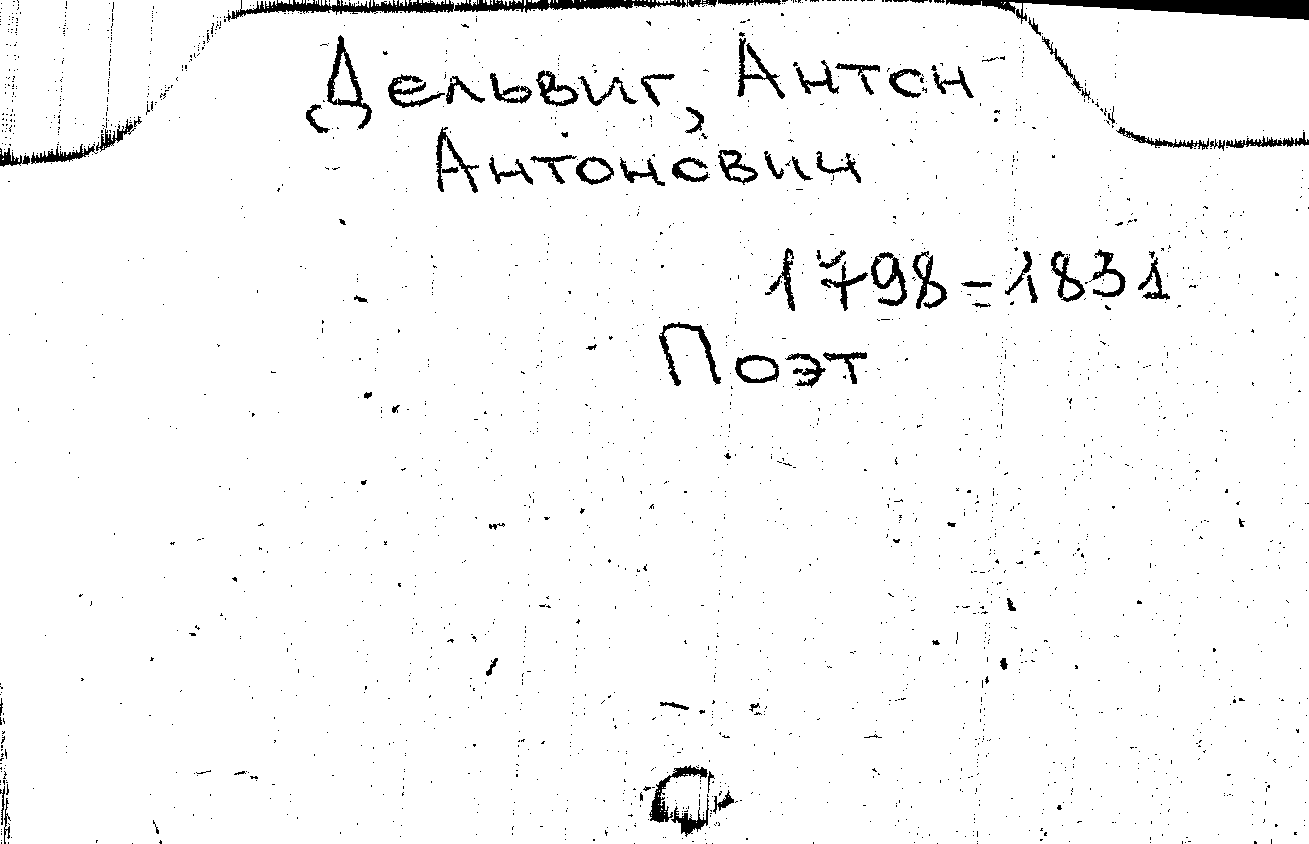 Дельвиг, Антон
Антонович
1798-1831
Поэт